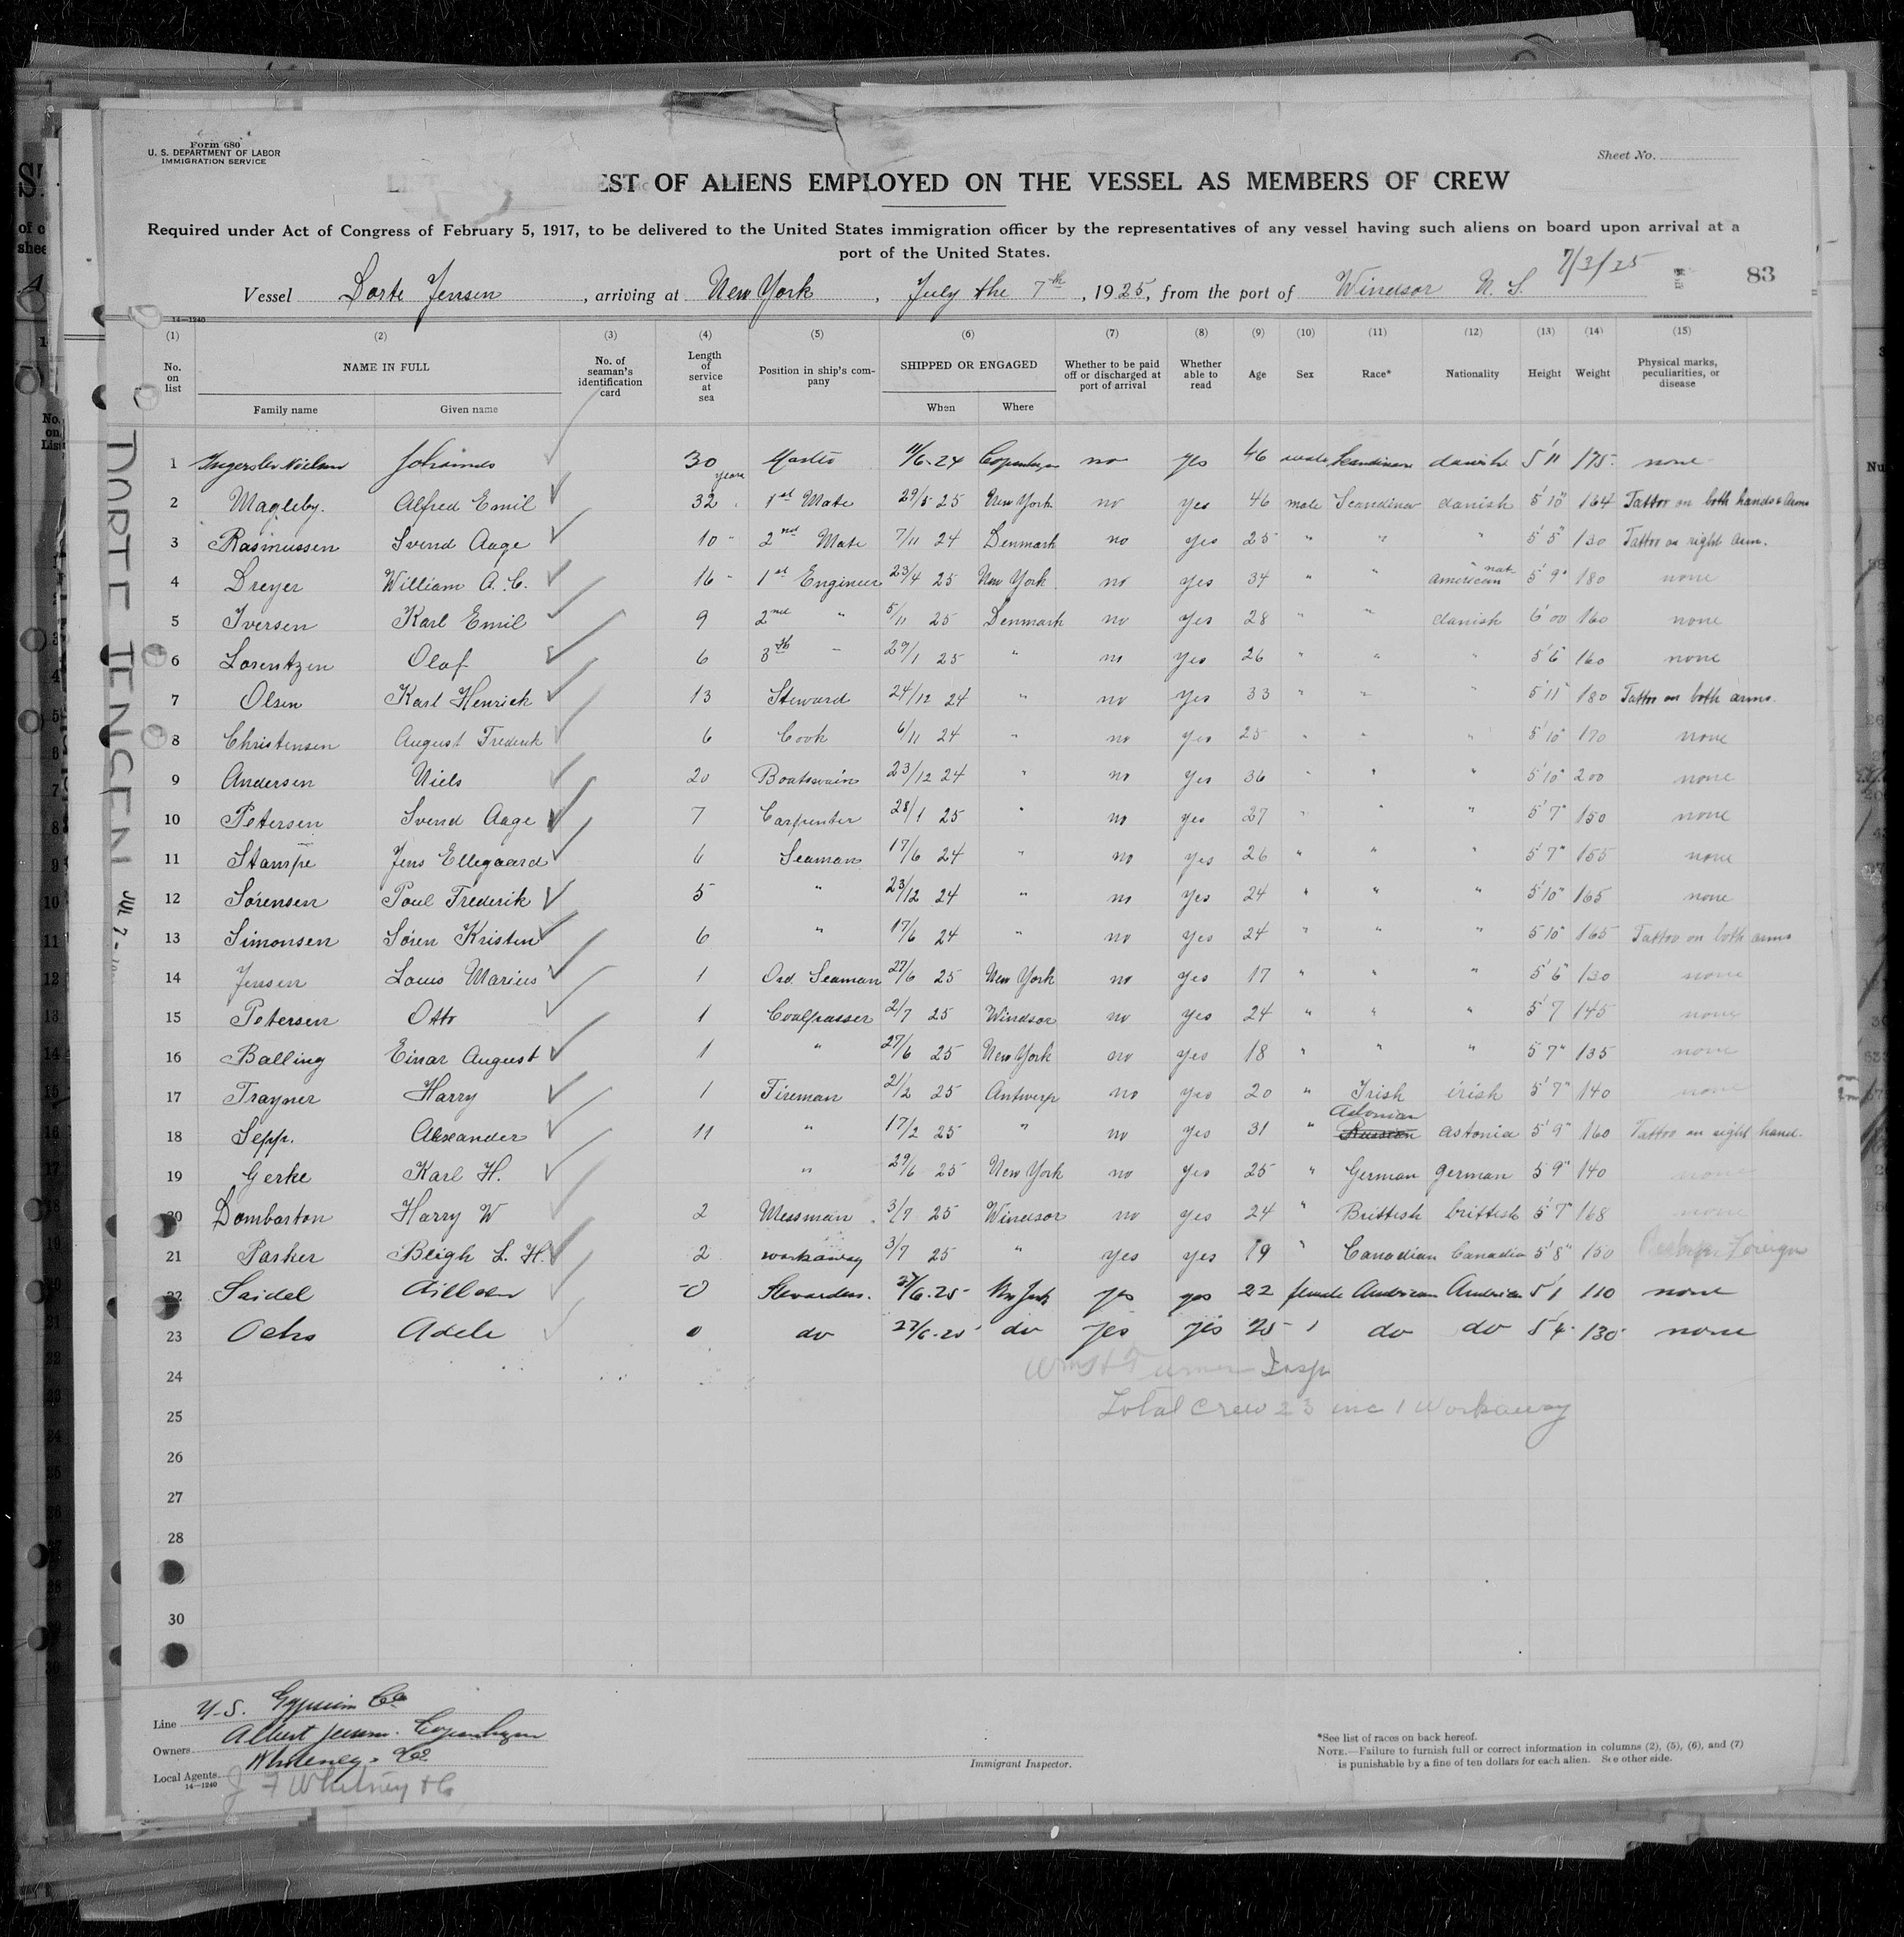 Form 680
U. S. DEPARTMENT OF LABOR
IMMIGRATION SERVICE
Sheet No.
EST OF ALIENS EMPLOYED ON THE VESSEL AS MEMBERS OF CREW
Required under Act of Congress of February 5, 1917, to be delivered to the United States immigration officer by the representatives of any vessel having such aliens on board upon arrival at a
port of the United States.
7/3/25
83
Vessel Dorte Jensen, arriving at New York, July the 7th, 1925, from the port of Windsor N. S.
14—1240
(1) (2) (3) (4) (5) (6) (7) (8) (9) (10) (11) (12) (13) (14) (15)
No. on list NAME IN FULL Family name Given name No. of seaman's identification card Length of service at sea Position in ship's company SHIPPED OR ENGAGED When Where Whether to be paid off or discharged at port of arrival Whether able to read Age Sex Race* Nationality Height Weight Physical marks, peculiarities, or disease
1 Ingerslev Nielsen Johannes 30 years Master 11/6-24 Copenhagen no yes 46 male Scandinav danish 5'11 175 none
2 Magleby. Alfred Emil 32 1st Mate 29/5 25 New York no yes 46 male Scandinav danish 5'10" 164 Tattoo on both hands & arms
3 Rasmussen Svend Aage 10 " 2nd Mate 7/11 24 Denmark no yes 25 " " " 5'5" 130 Tattoo on right arm.
4 Dreyer William A. C. 16 " 1st Engineer 23/4 25 New York no yes 34 " " american nat. 5'9" 180 none
5 Iversen Karl Emil 9 2nd " 5/11 25 Denmark no yes 28 " " danish 6'00 160 none
6 Lorentzen Olaf 6 3th " 29/1 25 " no yes 26 " " " 5'6" 160 none
7 Olsen Karl Henrick 13 Steward 24/12 24 " no yes 33 " " " 5'11" 180 Tattoo on both arms.
8 Christensen August Frederik 6 Cook 6/11 24 " no yes 25 " " " 5'10" 170 none
9 Andersen Niels 20 Boatswain 23/12 24 " no yes 36 " " " 5'10" 200 none
10 Petersen Svend Aage 7 Carpenter 28/1 25 " no yes 27 " " " 5'7" 150 none
11 Stampe Jens Ellegaard 6 Seaman 17/6 24 " no yes 26 " " " 5'7" 155 none
12 Sørensen Poul Frederik 5 " 23/12 24 " no yes 24 " " " 5'10" 165 none
13 Simonsen Søren Kristen 6 " 17/6 24 " no yes 24 " " " 5'10" 165 Tattoo on both arms
14 Jensen Louis Marius 1 Ord. Seaman 27/6 25 New York no yes 17 " " " 5'6" 130 none
15 Petersen Otto 1 Coalpasser 2/7 25 Windsor no yes 24 " " " 5'7 145 none
16 Balling Einar August 1 " 27/6 25 New York no yes 18 " " " 5'7" 135 none
17 Trayner Harry 1 Fireman 21/2 25 Antwerp no yes 20 " Irish irish 5'7" 140 none
18 Sepp. Alexander 11 " 17/2 25 " no yes 31 " Russian Astonian astonia 5'9" 160 Tattoo on right hand.
19 Gerke Karl H. " 29/6 25 New York no yes 25 " German german 5'9" 140 none
20 Dombarton Harry W 2 Messman. 3/7 25 Windsor no yes 24 " Brittish brittish 5'7" 168 none
21 Parker Bligh L. H. 2 workaway 3/7 25 " yes yes 19 " Canadian Canadia 5'8" 150 Foreign
22 Saidel 0 Stewardess. 27/6-25 New York yes yes 22 female American American 5'1 110 none
23 Ochs Adele 0 do 27/6-25 do yes yes 25 " do do 5'4 130 none
24 Wm H Turner Insp
25 Total Crew 23 inc 1 Workaway
26
27
28
30
DORTE JENSEN JUL 7 -
Line U. S. Gypsum Co
Owners Albert Jensen. Copenhagen
Local Agents Whiteney & Co
14—1240
J F Whitney & Co
Immigrant Inspector.
*See list of races on back hereof.
NOTE.—Failure to furnish full or correct information in columns (2), (5), (6), and (7)
is punishable by a fine of ten dollars for each alien. See other side.